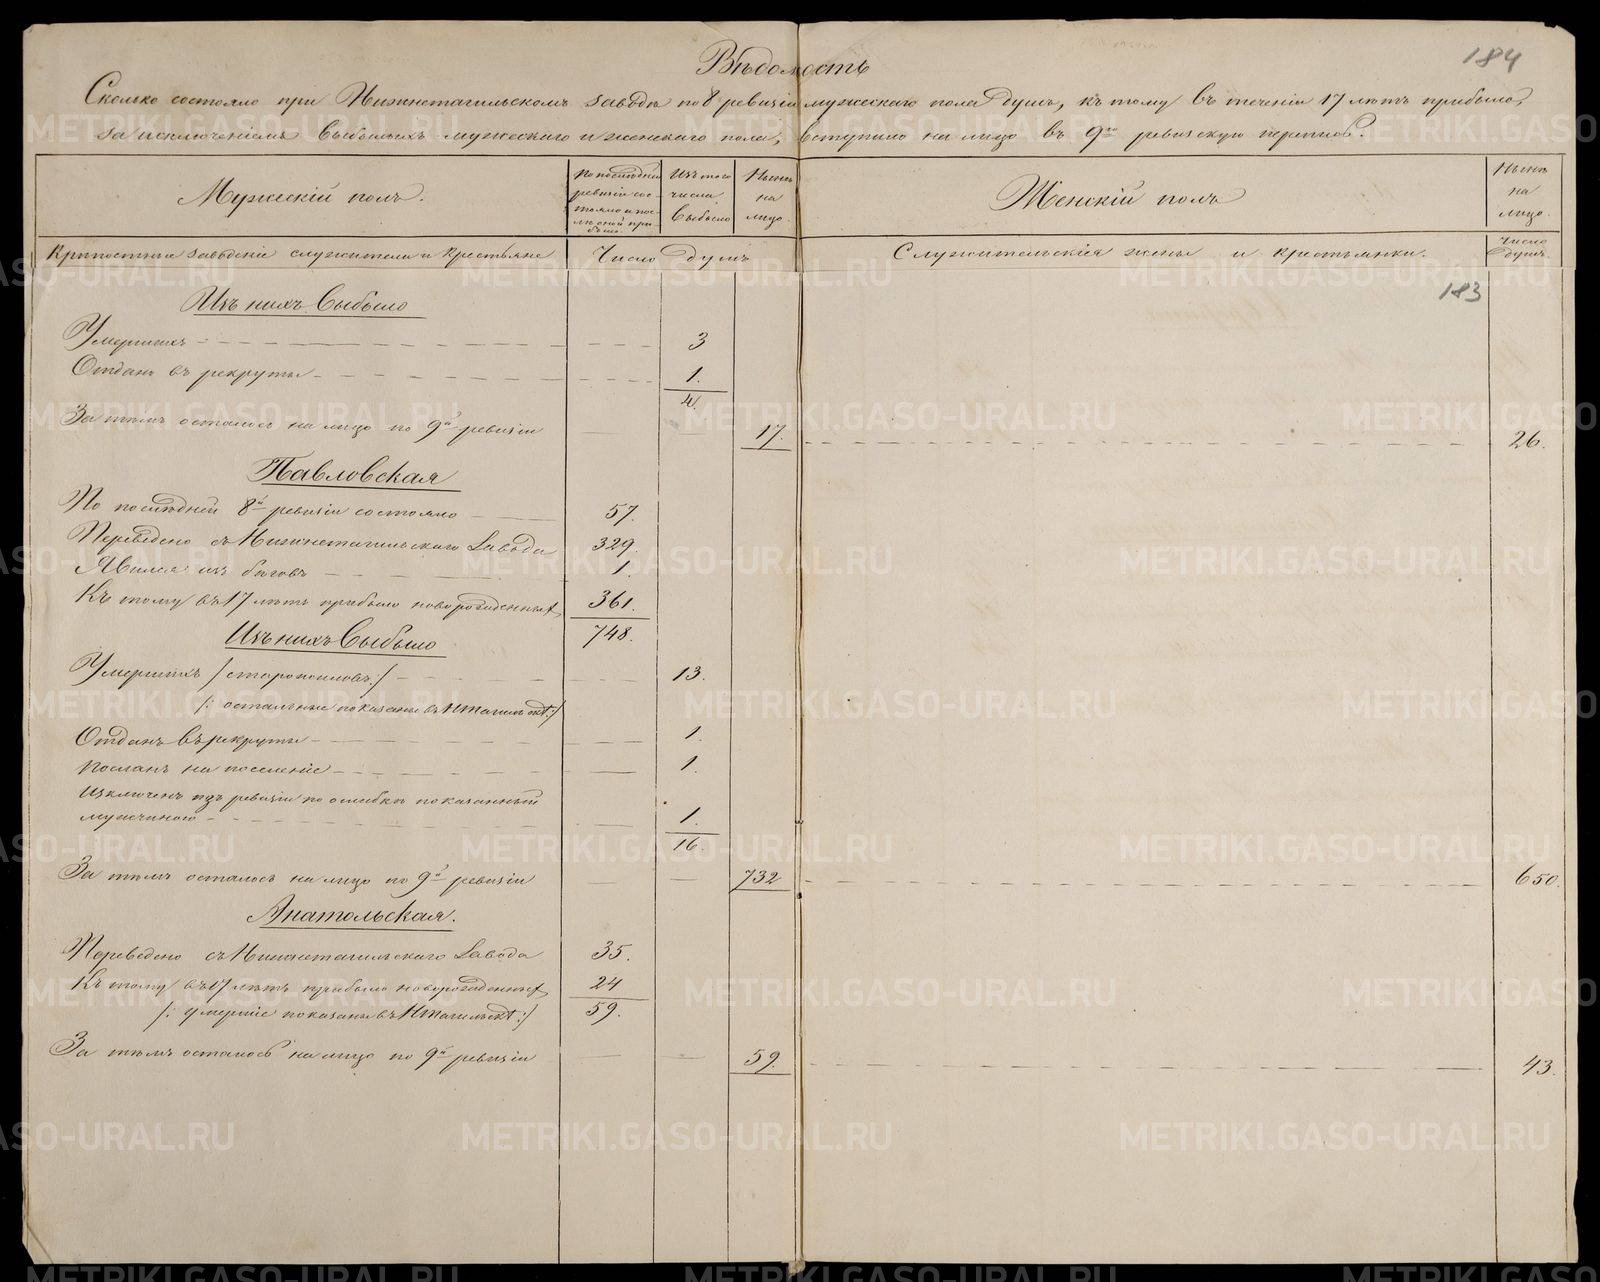 184
Вѣдомость
Сколько состояло при Нижнетагильскомъ заводѣ по 8 ревизіи мужескаго пола душъ, къ тому въ теченіи 17 лѣтъ прибыло,
за исключеніемъ выбылыхъ мужескаго и женскаго пола, вступило на лицо въ 9ю ревизскую перепись.
Мужескій полъ.
По послѣдней
ревизіи сос-
тояло и пос-
лѣ оной при
было.
Изъ того
числа
выбыло
Нынѣ
на
лицо.
Женскій полъ
Нынѣ
на
лицо.
Крѣпостные заводскіе служители и крестьяне
Число душъ
Служительскія жены и крестьянки.
Число
душъ.
183
Изъ нихъ выбыло
Умершихъ 3
Отданъ въ рекруты 1.
4.
За тѣмъ осталось на лицо по 9й ревизіи 17. 26.
Павловская
По послѣдней 8й ревизіи состояло 57.
Переведено съ Нижнетагильскаго Завода 329.
Явился изъ бѣговъ 1.
Къ тому въ 17 лѣтъ прибыло новорожденныхъ 361.
748.
Изъ нихъ выбыло
Умершихъ /старополовъ:/ 13.
/: остальные показаны въ Нтагильскѣ:/
Отданъ въ рекруты 1.
Посланъ на поселеніе 1.
Изключенъ изъ ревизіи по ошибкѣ показанный
мужчиною 1.
16.
За тѣмъ осталось на лицо по 9й ревизіи 732 650.
Анатольская.
Переведено съ Нижнетагильскаго Завода 35.
Къ тому въ 17 лѣтъ прибыло новорожденныхъ 24
/: умершіе показаны въ Нтагильскѣ:/ 59.
За тѣмъ осталось на лицо по 9й ревизіи 59. 43.
METRIKI.GASO-URAL.RU